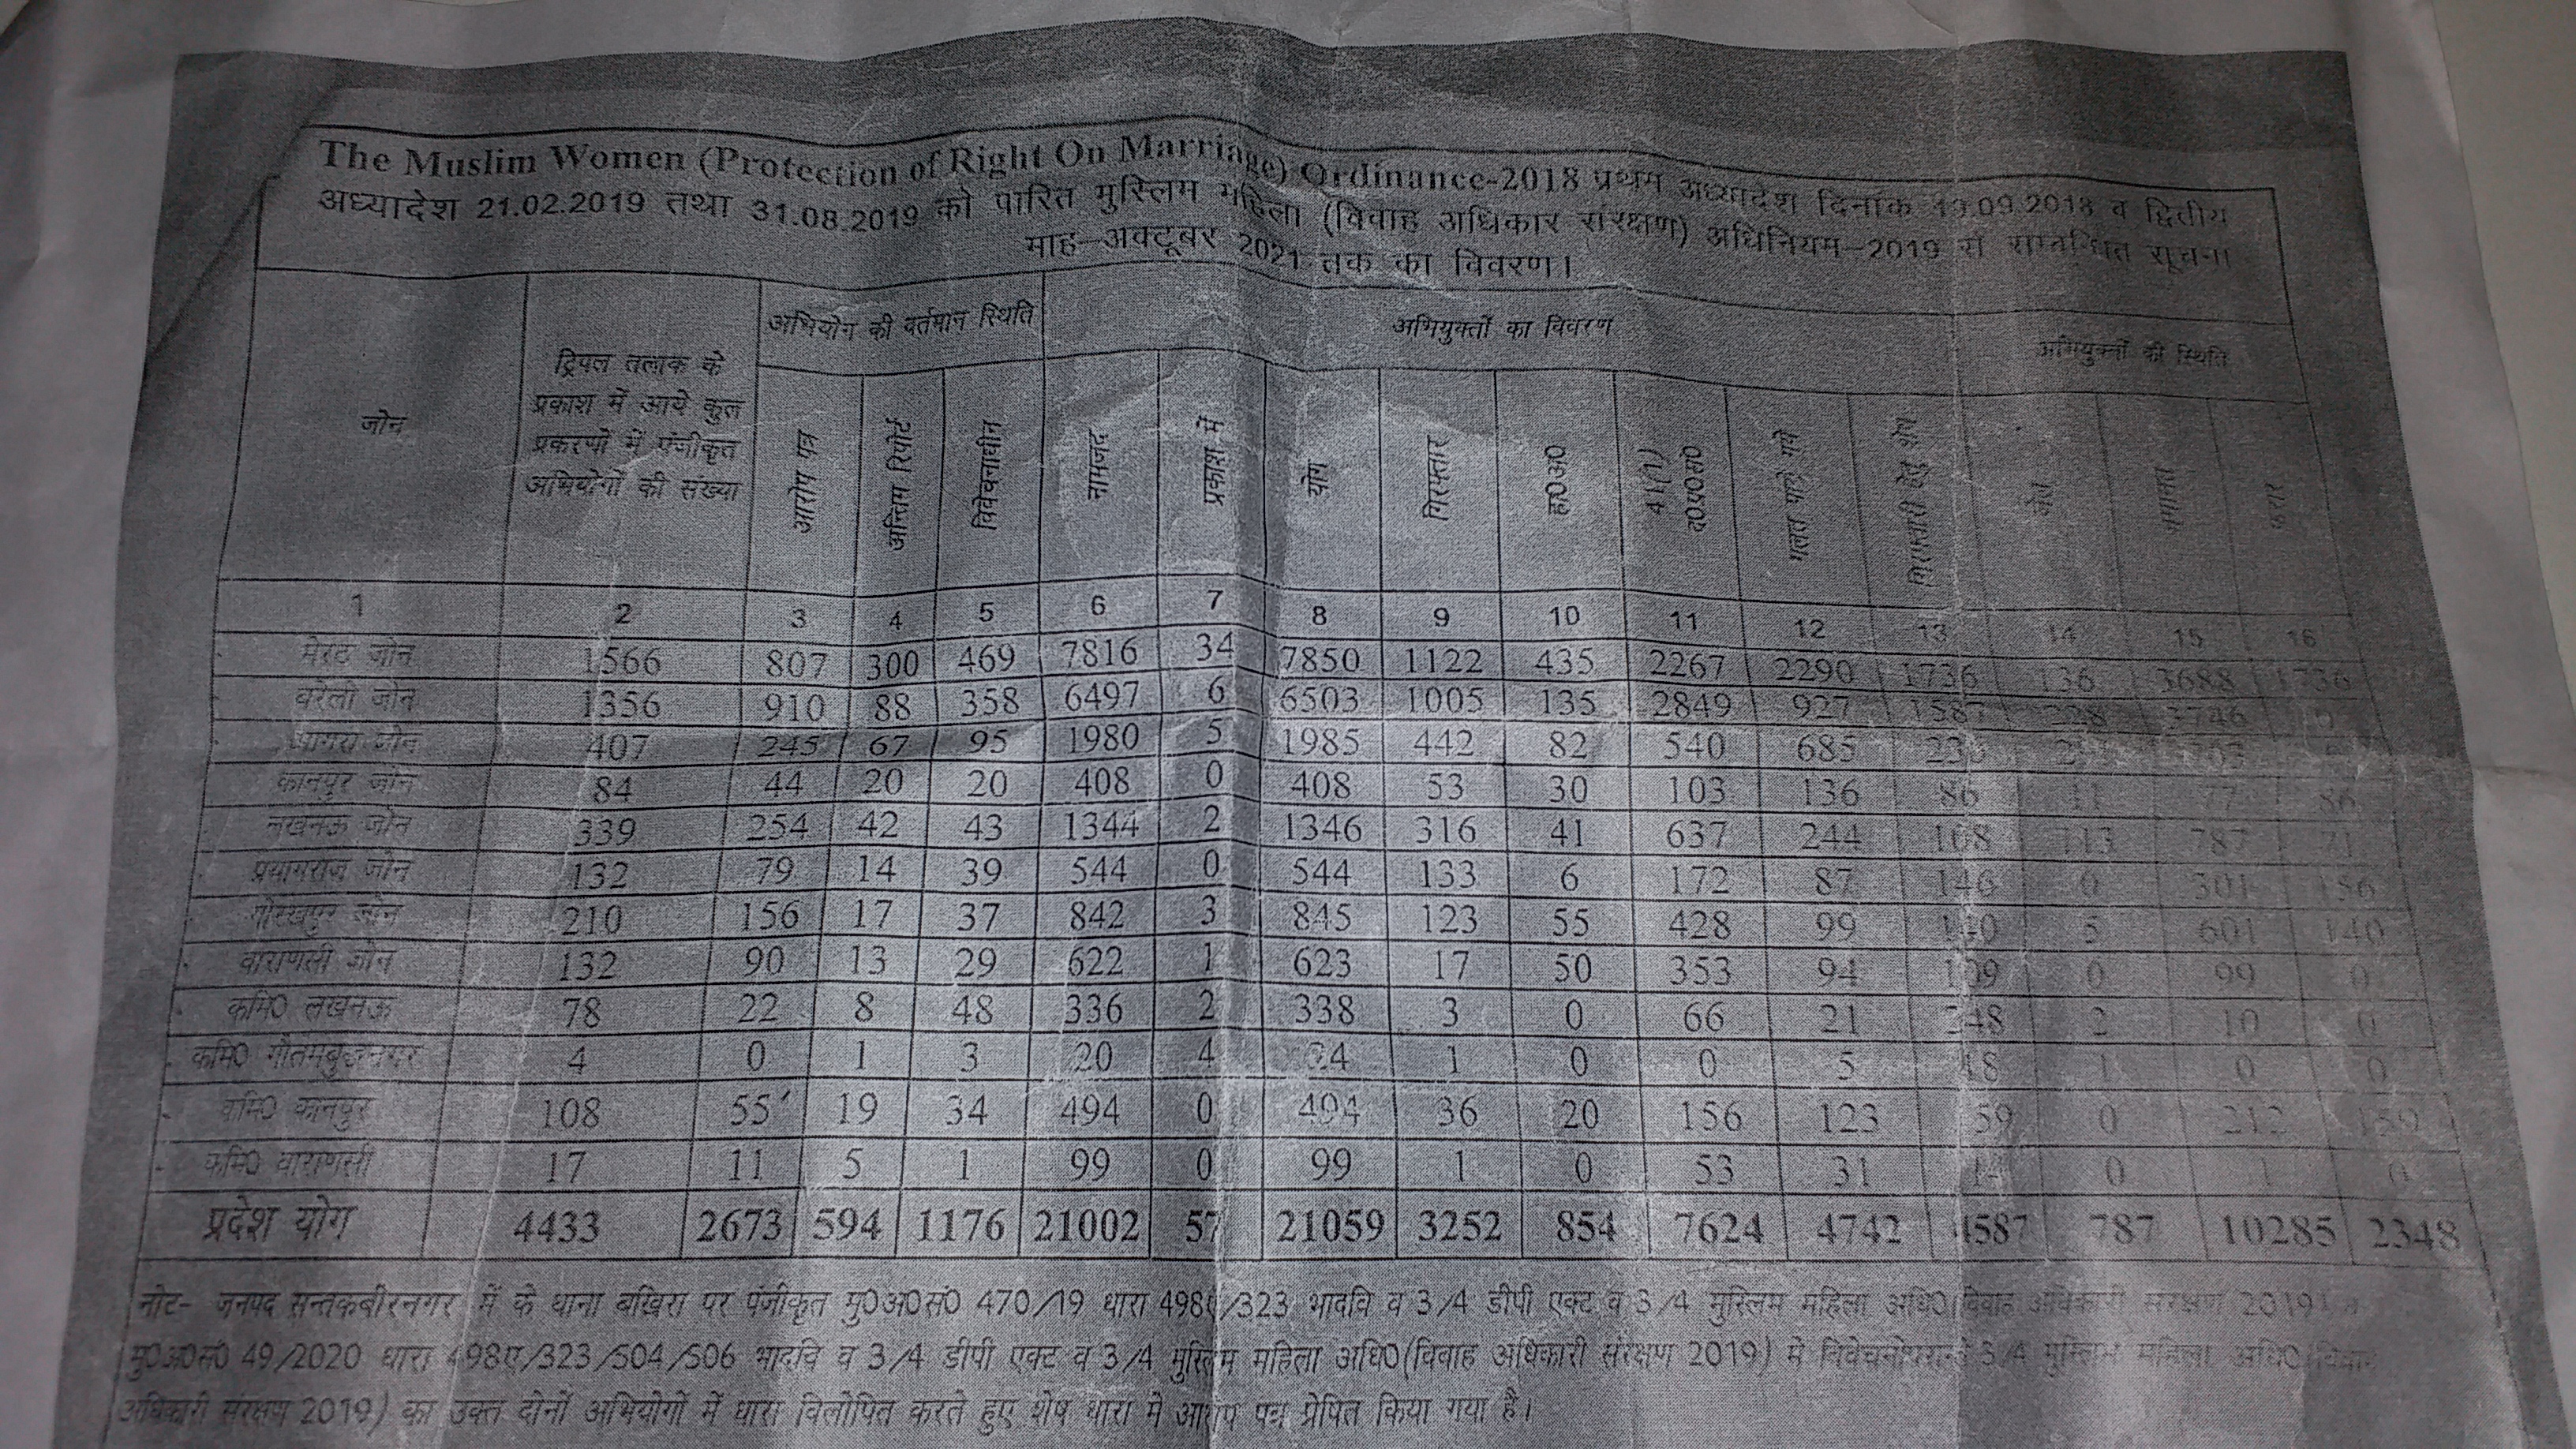 The Muslim Women (Protection of Right On Marriage) Ordinance-2018 प्रथम अध्यादेश दिनांक 19.09.2018 व द्वितीय
अध्यादेश 21.02.2019 तथा 31.08.2019 को पारित मुस्लिम महिला (विवाह अधिकार संरक्षण) अधिनियम-2019 से सम्बन्धित सूचना
माह-अक्टूबर 2021 तक का विवरण।
जोन
ट्रिपल तलाक के
प्रकाश में आये कुल
प्रकरणों में पंजीकृत
अभियोगों की संख्या
अभियोग की वर्तमान स्थिति
अभियुक्तों का विवरण
अभियुक्तों की स्थिति
आरोप पत्र
अन्तिम रिपोर्ट
विवेचनाधीन
नामजद
प्रकाश में
योग
गिरफ्तार
ह0अ0
41(1)
द0प्र0सं0
गलत पाये गये
गिरफ्तारी हेतु शेष
जेल
जमानत
फरार
1 2 3 4 5 6 7 8 9 10 11 12 13 14 15 16
मेरठ जोन 1566 807 300 469 7816 34 7850 1122 435 2267 2290 1736 136 3688 1736
बरेली जोन 1356 910 88 358 6497 6 6503 1005 135 2849 927 1587 228 3746
आगरा जोन 407 245 67 95 1980 5 1985 442 82 540 685
कानपुर जोन 84 44 20 20 408 0 408 53 30 103 136 86 11 77 86
लखनऊ जोन 339 254 42 43 1344 2 1346 316 41 637 244 108 113 787 71
प्रयागराज जोन 132 79 14 39 544 0 544 133 6 172 87 146 0 301 156
गोरखपुर जोन 210 156 17 37 842 3 845 123 55 428 99 140 5 601 140
वाराणसी जोन 132 90 13 29 622 1 623 17 50 353 94 109 0 99 0
कमि0 लखनऊ 78 22 8 48 336 2 338 3 0 66 21 248 2 10 0
कमि0 गौतमबुद्धनगर 4 0 1 3 20 4 24 1 0 0 5 18 1 0 0
कमि0 कानपुर 108 55 19 34 494 0 494 36 20 156 123 0 212 159
कमि0 वाराणसी 17 11 5 1 99 0 99 1 0 53 31 0 1 0
प्रदेश योग 4433 2673 594 1176 21002 57 21059 3252 854 7624 4742 4587 787 10285 2348
नोट- जनपद सन्तकबीरनगर में के थाना बखिरा पर पंजीकृत मु0अ0सं0 470/19 धारा 498ए/323 भादवि व 3/4 डीपी एक्ट व 3/4 मुस्लिम महिला अधि0(विवाह अधिकारी संरक्षण 2019) व
मु0अ0सं0 49/2020 धारा 498ए/323/504/506 भादवि व 3/4 डीपी एक्ट व 3/4 मुस्लिम महिला अधि0(विवाह अधिकारी संरक्षण 2019) मे विवेचनोपरान्त 3/4 मुस्लिम महिला अधि0(विवाह
अधिकारी संरक्षण 2019) का उक्त दोनों अभियोगों में धारा विलोपित करते हुए शेष धारा मे आरोप पत्र प्रेषित किया गया है।